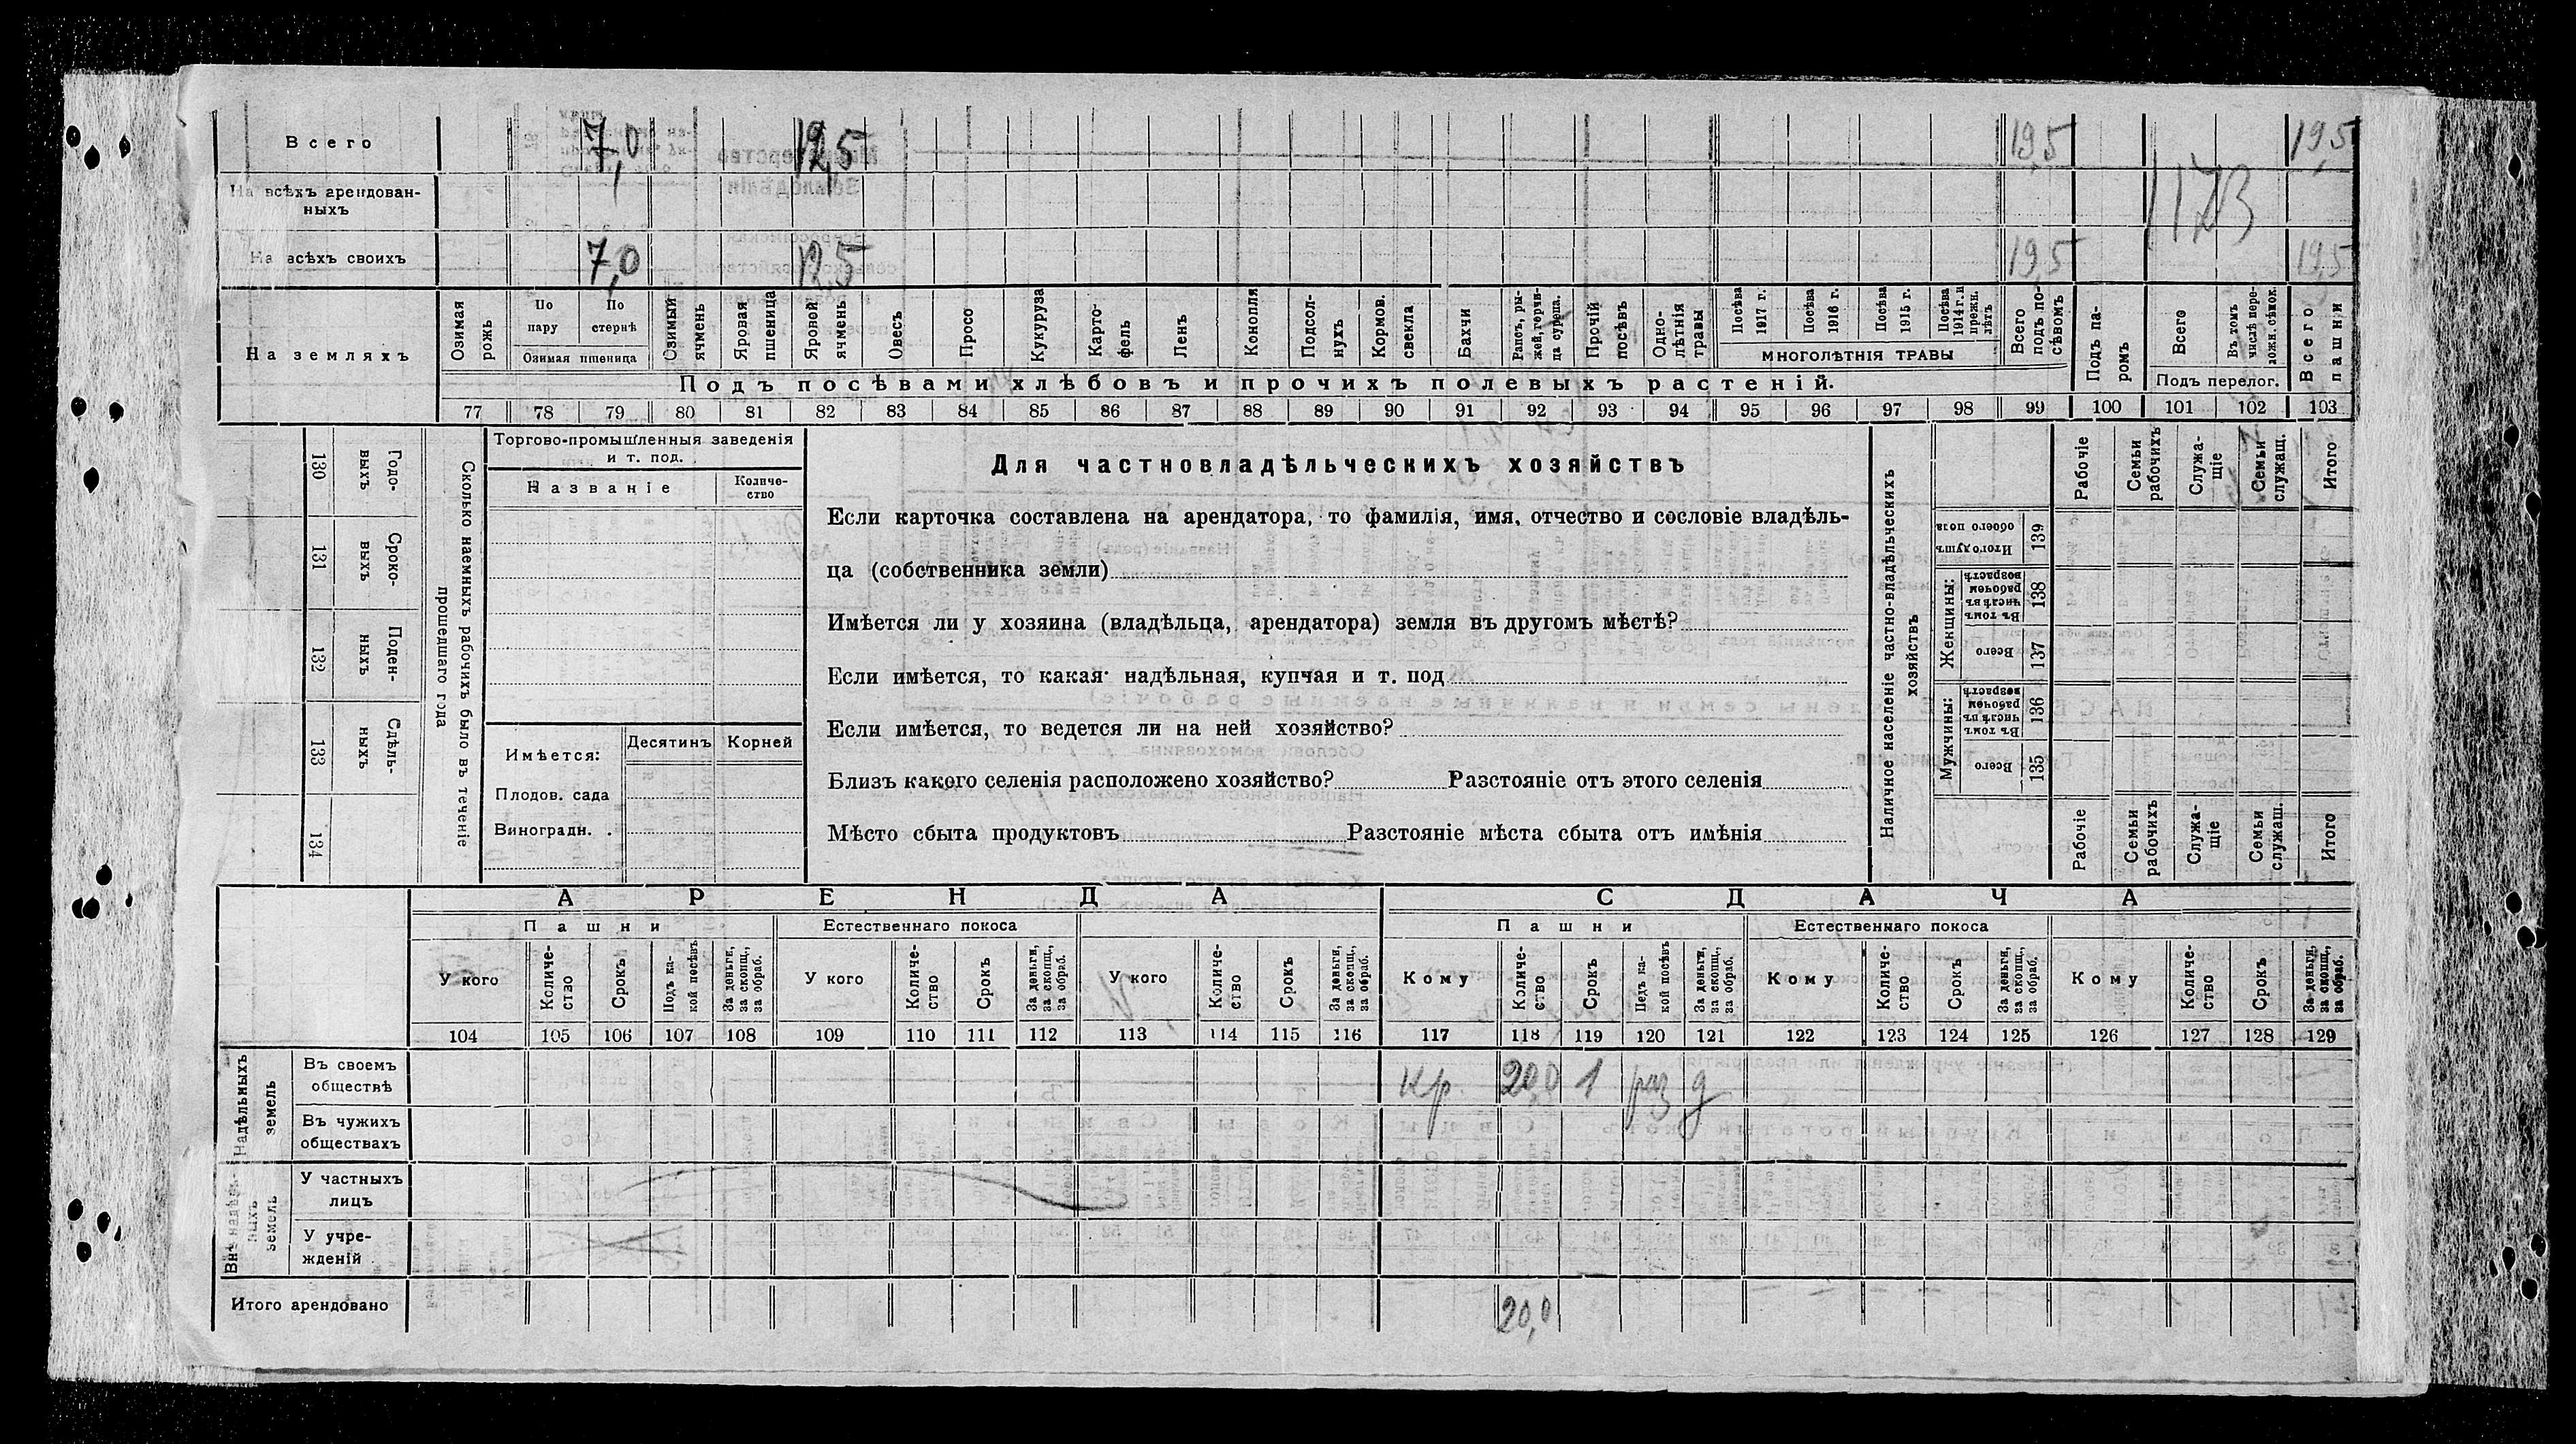 Всего 7,0 12,5 19,5 19,5
На всѣхъ арендован-
ныхъ
1173
На всѣхъ своихъ 7,0 12,5 19,5 19,5
На земляхъ
Озимая рожь
По пару
По стернѣ
Озимая пшеница
Озимый ячмень
Яровая пшеница
Яровой ячмень
Овесъ
Просо
Кукуруза
Карто-
фель
Ленъ
Конопля
Подсол-
нухъ
Кормов. свекла
Бахчи
Рапсъ, ры-
жей, горчи-
ца сурепа.
Прочій посѣвъ
Одно-
лѣтнія травы
Посѣва 1917 г.
Посѣва 1916 г.
Посѣва 1915 г.
Посѣва 1914 г. и прежн. лѣтъ
МНОГОЛѢТНІЯ ТРАВЫ
Всего подъ по-
сѣвомъ
Подъ па-
ромъ
Всего
Въ томъ числѣ пере-
ложн. сѣнок.
Подъ перелог.
Всего пашни
Подъ посѣвами хлѣбовъ и прочихъ полевыхъ растеній.
77 78 79 80 81 82 83 84 85 86 87 88 89 90 91 92 93 94 95 96 97 98 99 100 101 102 103
Сколько наемныхъ рабочихъ было въ теченіе
прошедшаго года
Годо-
выхъ
130
Сроко-
выхъ
131
Поден-
ныхъ
132
Сдѣль-
ныхъ
133
134
Торгово-промышленныя заведенія
и т. под.
Названіе
Количе-
ство
Имѣется:
Десятинъ Корней
Плодов. сада
Виноградн. .
Для частновладѣльческихъ хозяйствъ
Если карточка составлена на арендатора, то фамилія, имя, отчество и сословіе владѣль-
ца (собственника земли)
Имѣется ли у хозяина (владѣльца, арендатора) земля въ другомъ мѣстѣ?
Если имѣется, то какая надѣльная, купчая и т. под
Если имѣется, то ведется ли на ней хозяйство?
Близъ какого селенія расположено хозяйство? Разстояніе отъ этого селенія
Мѣсто сбыта продуктовъ Разстояніе мѣста сбыта отъ имѣнія
Наличное населеніе частно-владѣльческихъ
хозяйствъ
Рабочіе
Семьи рабочихъ
Служа-
щіе
Семьи служащ.
Итого
Итого душъ обоего пола
139
Женщины:
Въ томъ числѣ въ рабочем возрастѣ
138
Всего
137
Мужчины:
Въ томъ числѣ въ рабочем возрастѣ
136
Всего
135
Рабочіе
Семьи рабочихъ
Служа-
щіе
Семьи служащ.
Итого
АРЕНДА СДАЧА
Пашни Естественнаго покоса Пашни Естественнаго покоса
У кого
Количе-
ство
Срокъ
Подъ ка-
кой посѣвъ
За деньги, за скопщ., за обраб.
У кого
Количе-
ство
Срокъ
За деньги, за скопщ., за обраб.
У кого
Количе-
ство
Срокъ
За деньги, за скопщ., за обраб.
Кому
Количе-
ство
Срокъ
Подъ ка-
кой посѣвъ
За деньги, за скопщ., за обраб.
Кому
Количе-
ство
Срокъ
За деньги, за скопщ., за обраб.
Кому
Количе-
ство
Срокъ
За деньги, за скопщ., за обраб.
104 105 106 107 108 109 110 111 112 113 114 115 116 117 118 119 120 121 122 123 124 125 126 127 128 129
Надѣльныхъ земель
Въ своемъ
обществѣ
Кр. 20,0 1 раз д
Въ чужихъ
обществахъ
Внѣ надѣль-
ныхъ земель
У частныхъ
лицъ
У учре-
жденій
Итого арендовано 20,0